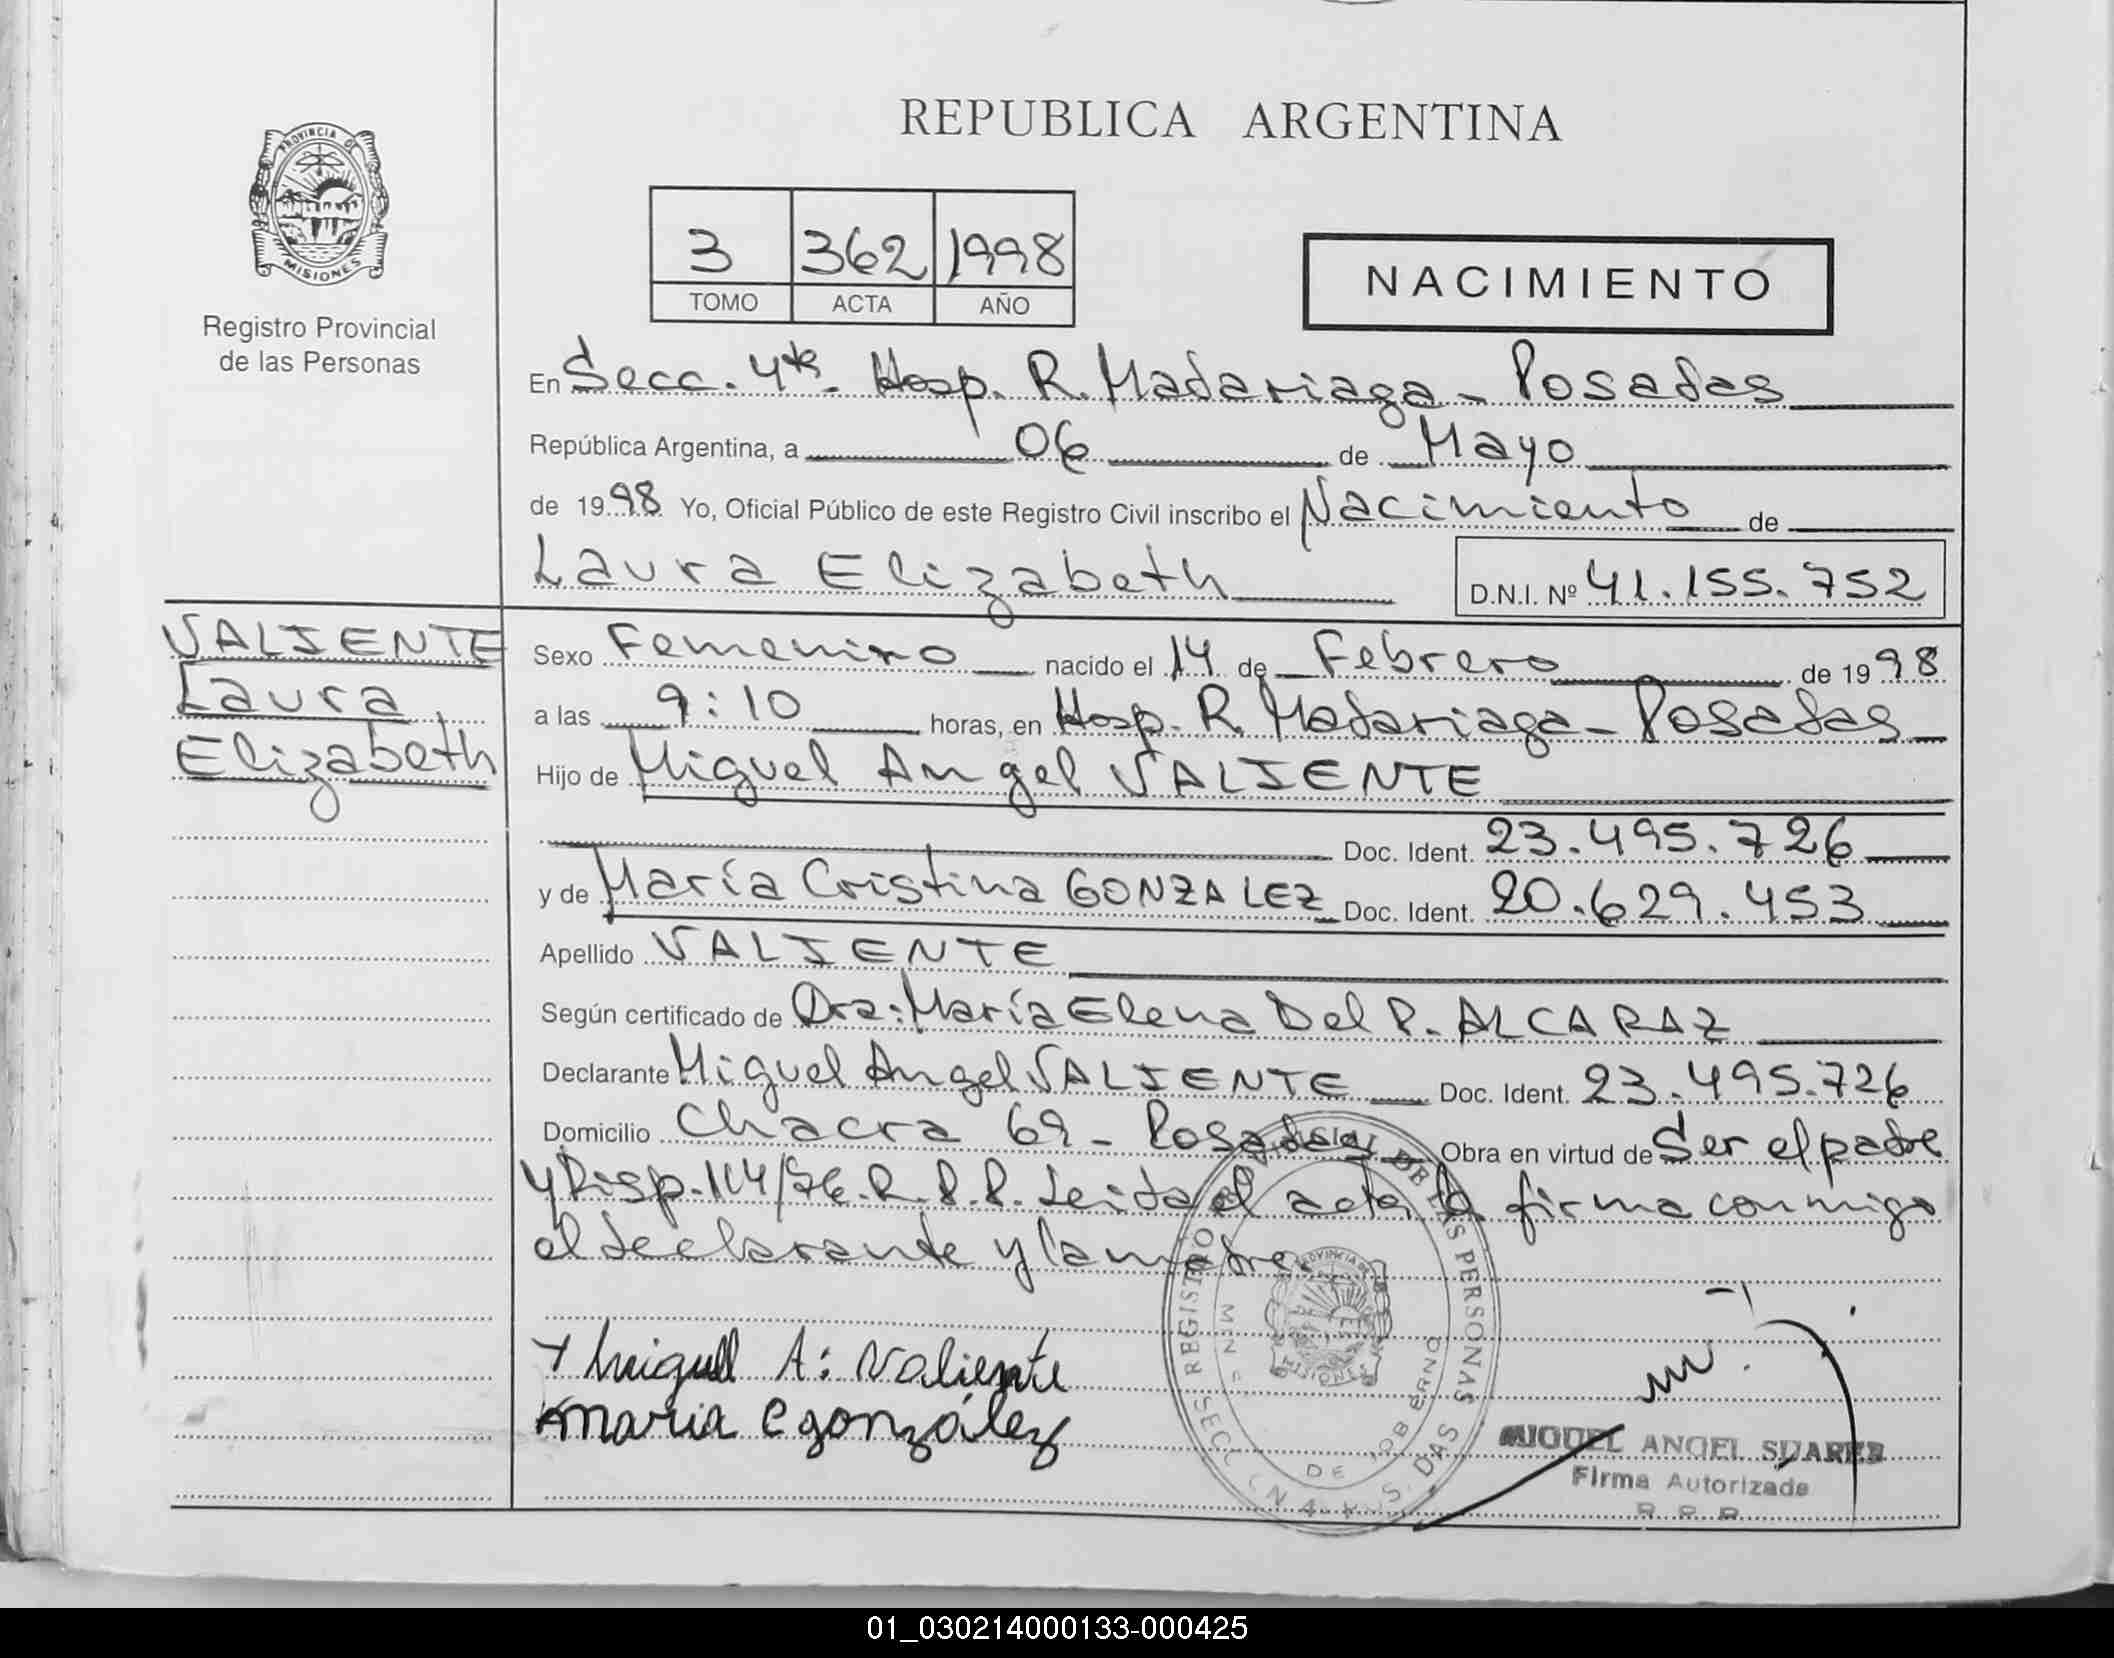 PROVINCIA DE
MISIONES
Registro Provincial
de las Personas
REPUBLICA ARGENTINA
3 362 1998
TOMO ACTA AÑO
NACIMIENTO
En Secc. 4ta. Hosp. R. Madariaga - Posadas
República Argentina, a 06 de Mayo
de 1998 Yo, Oficial Público de este Registro Civil inscribo el Nacimiento de
Laura Elizabeth D.N.I. Nº 41.155.752
VALIENTE
Laura
Elizabeth
Sexo Femenino nacido el 14 de Febrero de 1998
a las 9:10 horas, en Hosp. R. Madariaga - Posadas
Hijo de Miguel Angel VALIENTE
Doc. Ident. 23.495.726
y de María Cristina GONZALEZ Doc. Ident. 20.629.453
Apellido VALIENTE
Según certificado de Dra: María Elena Del P. ALCARAZ
Declarante Miguel Angel VALIENTE Doc. Ident. 23.495.726
Domicilio Chacra 69 - Posadas Obra en virtud de Ser el padre
y Disp. 114/96. R.P.P. Leida el acta la firma conmigo
el declarante y la madre.
Miguel A: Valiente
Maria C González
DE LAS PERSONAS
MISIONES
MIGUEL ANGEL SUAREZ
Firma Autorizada
R.P.P.
01_030214000133-000425